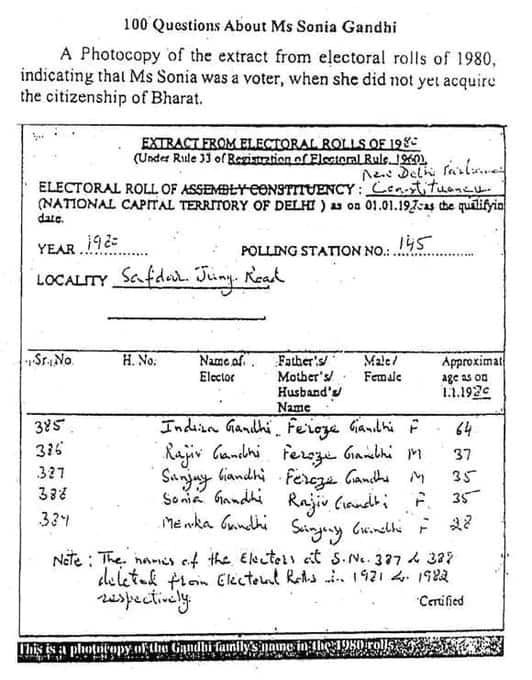 100 Questions About Ms Sonia Gandhi
A Photocopy of the extract from electoral rolls of 1980,
indicating that Ms Sonia was a voter, when she did not yet acquire
the citizenship of Bharat.
EXTRACT FROM ELECTORAL ROLLS OF 1980
(Under Rule 33 of Registration of Electoral Rule, 1960)
New Delhi Parliamen
ELECTORAL ROLL OF ASSEMBLY CONSTITUENCY : Constituency
(NATIONAL CAPITAL TERRITORY OF DELHI ) as on 01.01.1980 as the qualifyin
date.
YEAR 1980 POLLING STATION NO.: 145
LOCALITY Safdar Jung Road
Sr. No. H. No. Name of Father's/ Male/ Approximat
Elector Mother's/ Female age as on
Husband's/ 1.1.1980
Name
385 Indira Gandhi Feroze Gandhi F 64
386 Rajiv Gandhi Feroze Gandhi M 37
387 Sanjay Gandhi Feroze Gandhi M 35
388 Sonia Gandhi Rajiv Gandhi F 35
389 Menka Gandhi Sanjay Gandhi F 28
Note : The names of the Electors at S. No. 387 & 388
deleted from Electoral Rolls in 1981 & 1982
respectively.
Certified
This is a photocopy of the Gandhi family's name in the 1980 rolls